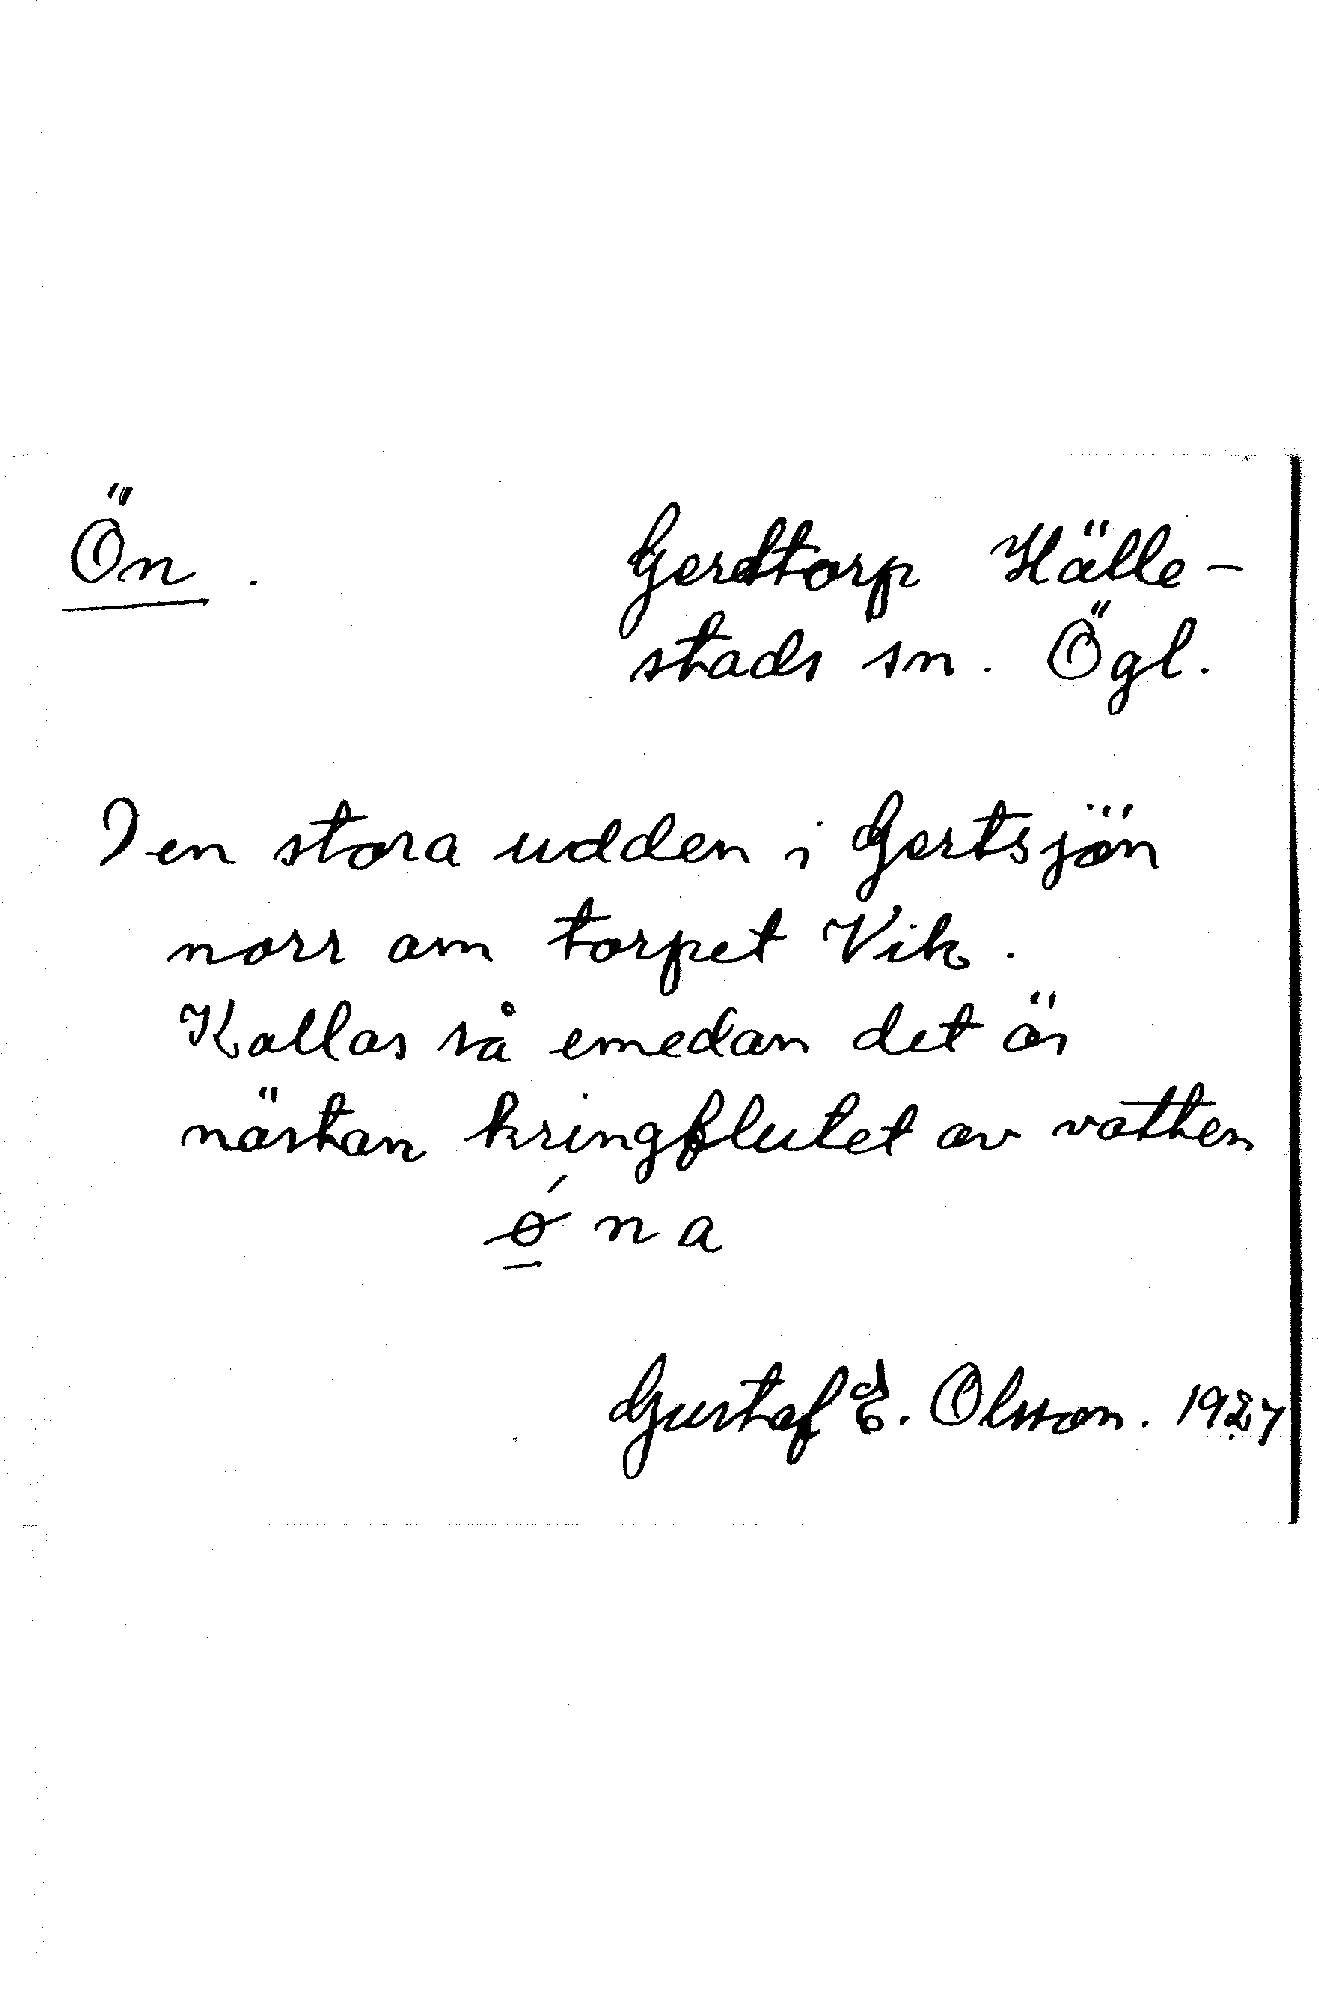 Ön.
Gerdtorp Hälle-
stads sn. Ögl.
Den stora udden i Gertsjön
norr om torpet Vik.
Kallas så emedan det är
nästan kringflutet av vatten
ǿ̱ n a
Gustaf E. Olsson. 1927